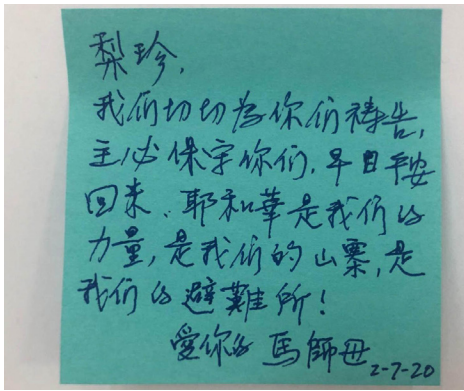 梨珍,
我们切切为你们祷告,
主必保守你们,早日平安
回来、耶和華是我们的
力量,是我们的山寨,是
我们的避難所!
愛你的 馬師母
2-7-20